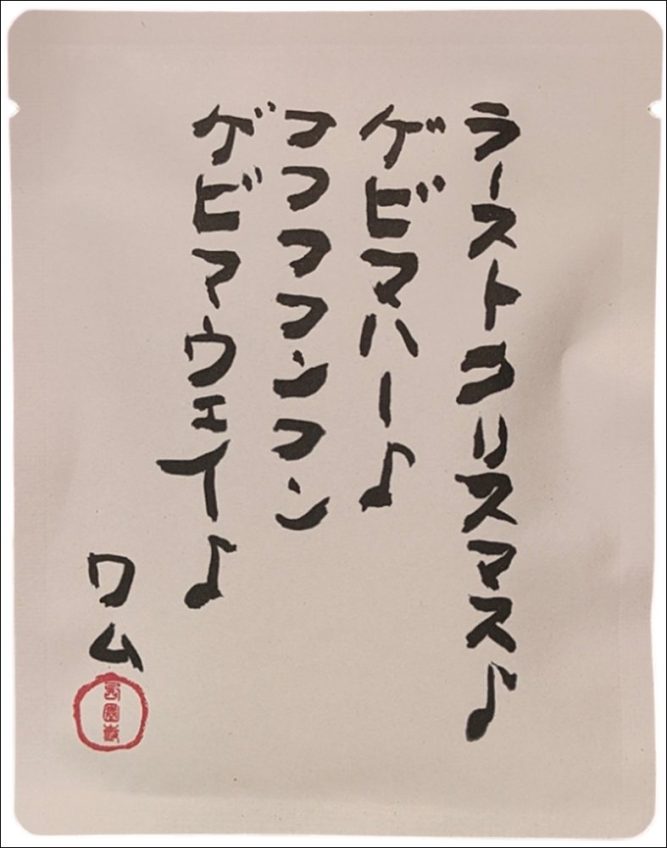 ラーストクリスマス♪
ゲビマハー♪
フフフフンフン
ゲビマウェイ♪
ワム